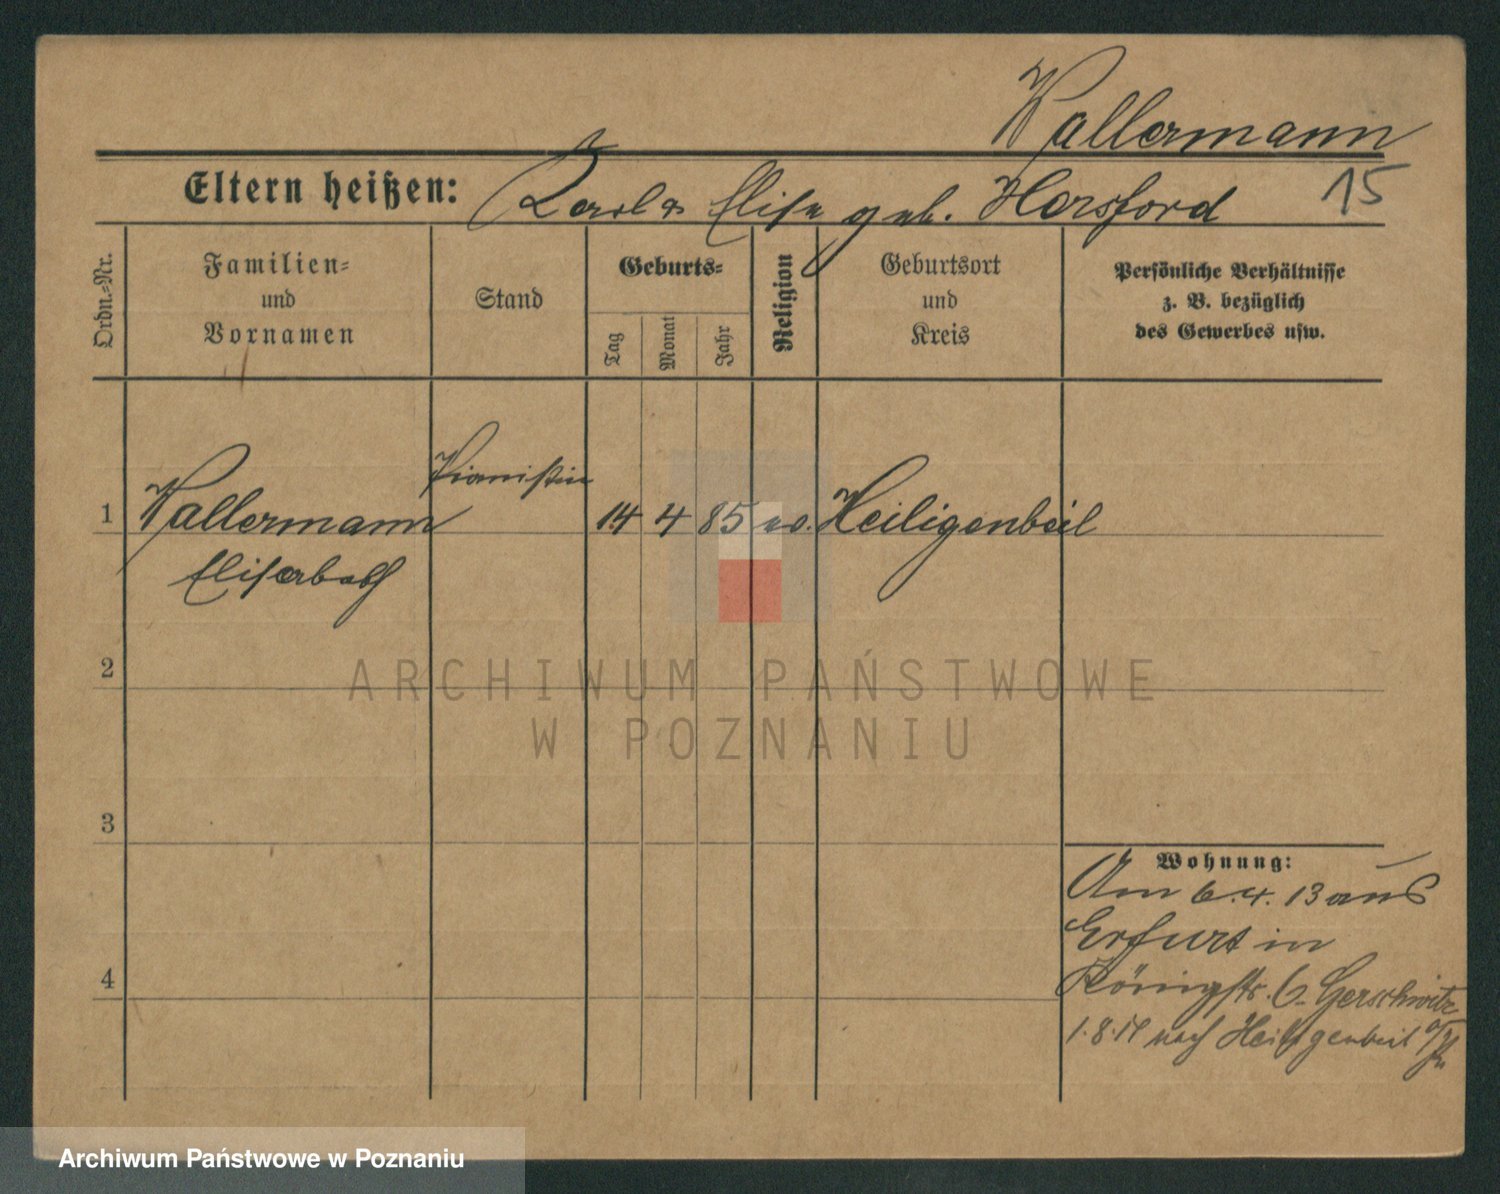 Wallermann
Eltern heißen: Karl & Elise geb. Horsford
15
Ordn.-Nr.
Familien-
und
Vornamen
Stand
Geburts-
Tag
Monat
Jahr
Religion
Geburtsort
und
Kreis
Persönliche Verhältnisse
z. B. bezüglich
des Gewerbes usw.
Pianistin
1 Wallermann 14 4 85 ev. Heiligenbeil
Elisabeth
2
ARCHIWUM PAŃSTWOWE
W POZNANIU
3
Wohnung:
Am 6.4.13 aus
Erfurt in
Königstr. 6 Gerschwitz
4
1.8.14 nach Heiligenbeil
Archiwum Państwowe w Poznaniu